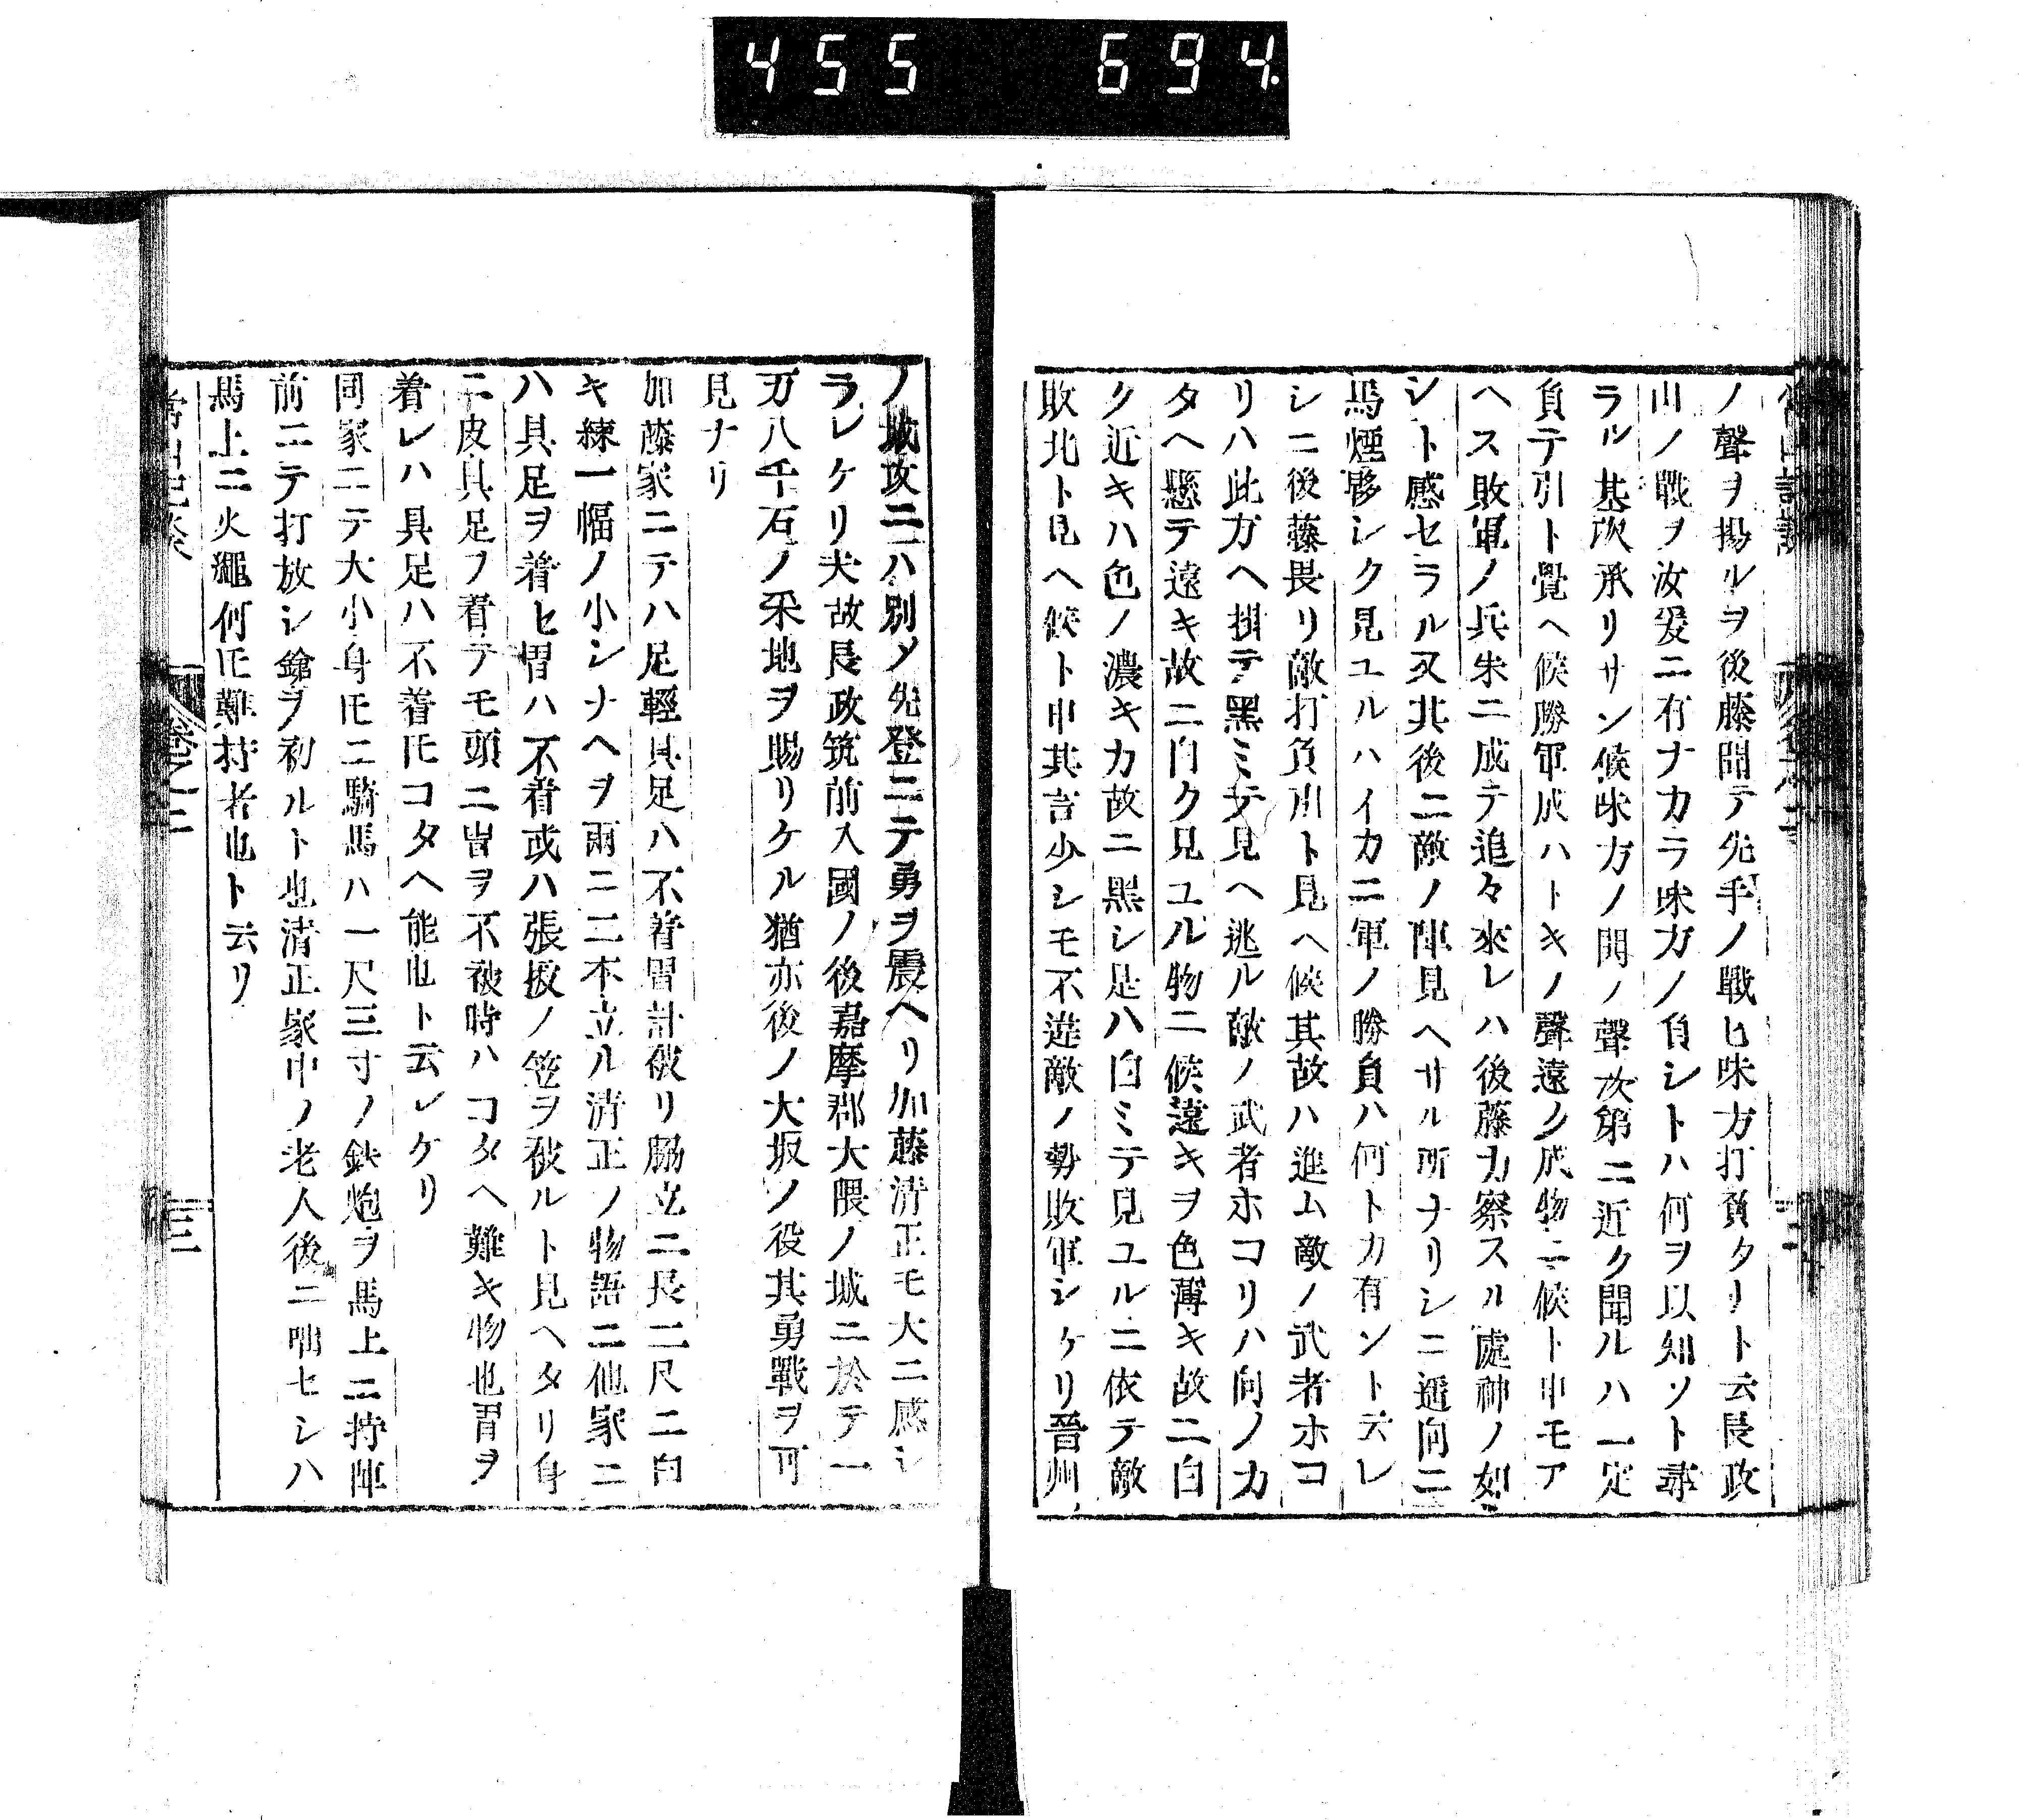 455 694
ノ聲ヲ揚ルヲ後藤聞テ先手ノ戰ヒ味方打負タリト云長政
山ノ戰ヲ汝爰ニ有ナカラ味方ノ負シトハ何ヲ以知ソト尋
ラル基次承リサン候味方ノ鬨ノ聲次第ニ近ク聞ルハ一定
負テ引ト覺ヘ候勝軍成ハトキノ聲遠ク成物ニ候ト申モア
ヘス敗軍ノ兵朱ニ成テ追々來レハ後藤カ察スル處神ノ如
シト感セラル又其後ニ敵ノ陣見ヘサル所ナリシニ遥向ニ
馬煙夥シク見ユルハイカニ軍ノ勝負ハ何トカ有ントテレ
シニ後藤畏リ敵打負川ト見ヘ候其故ハ進ム敵ノ武者ホコ
リハ此方ヘ掛テ黑ミテ見ヘ逃ル敵ノ武者ホコリハ向ノカ
タヘ懸テ遠キ故ニ白ク見ユル物ニ候遠キヲ色薄キ故ニ白
ク近キハ色ノ濃キカ故ニ黑シ是ハ白ミテ見ユルニ依テ敵
敗北ト見ヘ候ト申其言少シモ不違敵ノ勢敗軍シケリ晉州
ノ城攻ニハ別〆先登ニテ勇ヲ震ヘリ加藤淸正モ大ニ感シ
ラレケリ夫故長政筑前入國ノ後嘉摩郡大隈ノ城ニ於テ一
万八千石ノ采地ヲ賜リケル猶亦後ノ大坂ノ役其勇戰ヲ可
見ナリ
加藤家ニテハ足輕具足ハ不着冑計被リ脇立ニ長二尺ニ白
キ練一幅ノ小シナヘヲ兩ニ二本立ル淸正ノ物語ニ他家ニ
ハ具足ヲ着セ冑ハ不着或ハ張抜ノ笠ヲ被ルト見ヘタリ身
ニ皮具足ヲ着テモ頭ニ冑ヲ不被時ハコタヘ難キ物也冑ヲ
着レハ具足ハ不着𪜈コタヘ能也ト云レケリ
同家ニテ大小身𪜈ニ騎馬ハ一尺三寸ノ鉄炮ヲ馬上ニ持陣
前ニテ打放シ鎗ヲ初ルト也淸正家中ノ老人後ニ咄セシハ
馬上ニ火繩何𪜈難持者也ト云リ
常山紀談 卷之二 三